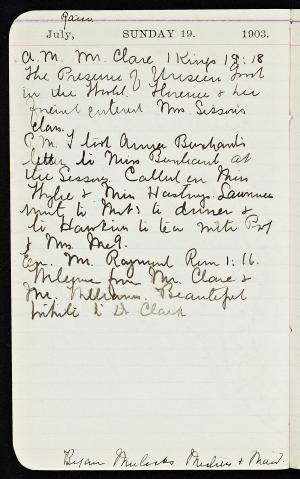 Rain
July, SUNDAY 19. 1903.
A.M. Mr. Clare 1 Kings 19:18
The Presence of Unseen Good
in the World. Florence & her
friend entered Mrs. Sisson's
class.
P.M. I took Anna Burhan's
letter to Miss Burhans at
the Sissons. Called on Miss
Wylie & Miss Hastings. Lawrence
went to to dinner &
to Hawkins to tea with Prof
& Mrs. McG.
Ev. Mr. Raymont Rom 1:16.
Welcome from Mr. Clare &
Mr. Williams. Beautiful
tribute to Dr. Clark
Began Medicine & Maid.